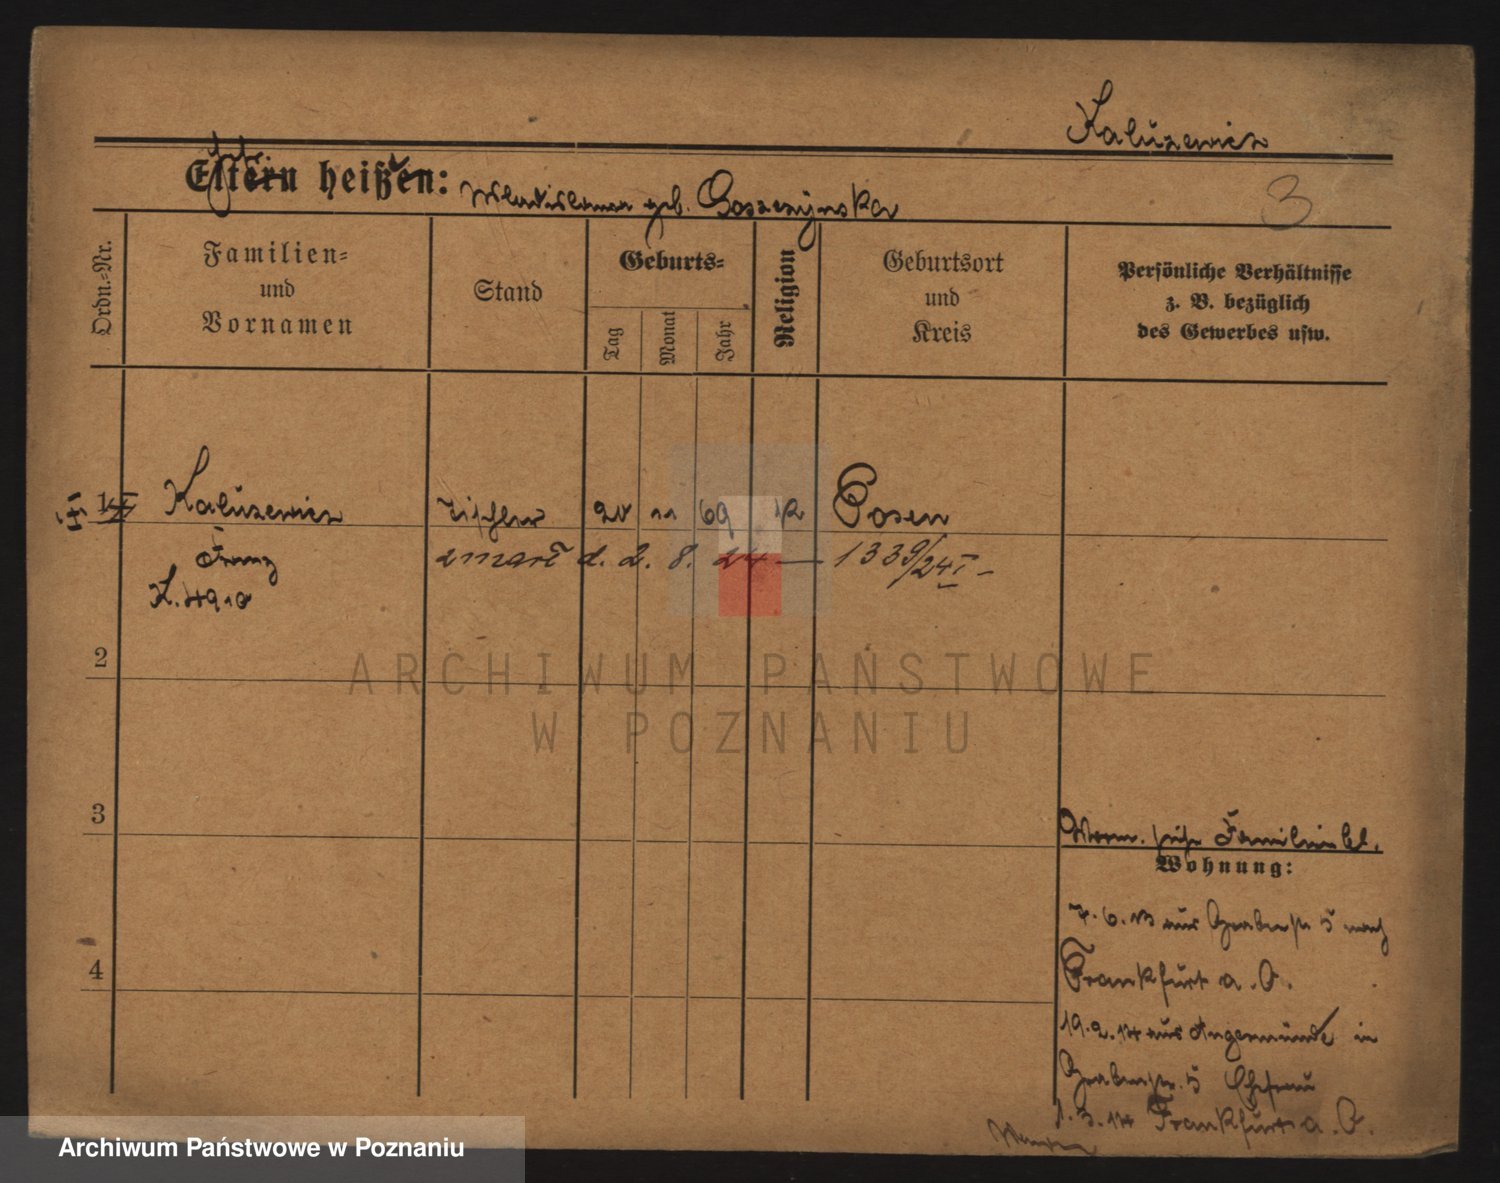 Kaluzewicz
Eltern heißen: Wladislawa geb. Goszczynska
3
Ordn.-Nr.
Familien-
und
Vornamen
Stand
Geburts-
Tag
Monat
Jahr
Religion
Geburtsort
und
Kreis
Persönliche Verhältnisse
z. B. bezüglich
des Gewerbes usw.
1 Kaluzewicz Tischler 20 11 69 k Posen
Franz zmarł d. 2. 8. 24 — 1339/24 I –
K. 4910
2
3
4
Worm. siehe Familienbl.
Wohnung:
7. 6. 13 aus Grabenstr 5 nach
Frankfurt a. O.
19. 2. 14 aus Angermünde in
Grabenstr. 5 Ehefrau
1. 3. 14 Frankfurt a. O.
ARCHIWUM PAŃSTWOWE
W POZNANIU
Archiwum Państwowe w Poznaniu